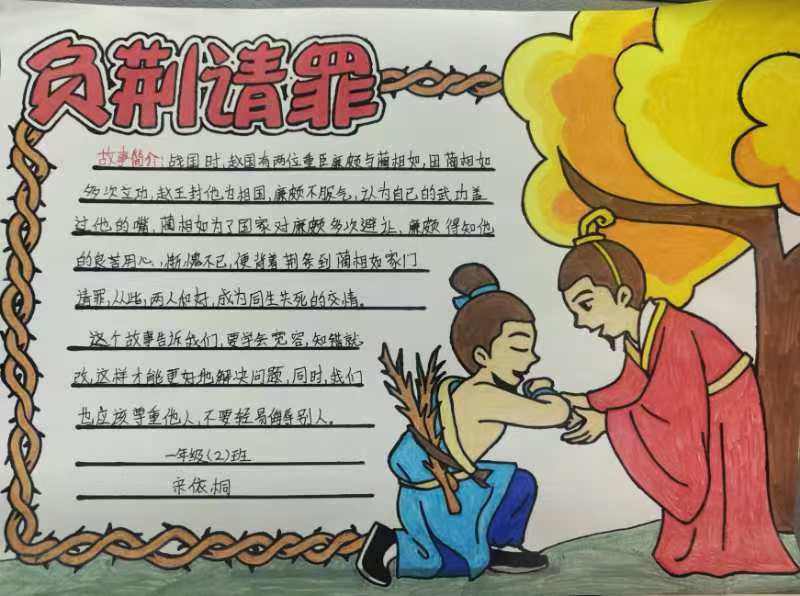 负荆请罪
故事简介:战国时,赵国有两位重臣廉颇与蔺相如,因蔺相如
多次立功,赵王封他为相国,廉颇不服气,认为自己的武功盖
过他的嘴,蔺相如为了国家对廉颇多次避让,廉颇得知他
的良苦用心,惭愧不已,便背着荆条到蔺相如家门
请罪,从此,两人和好,成为同生失死的交情。
这个故事告诉我们,要学会宽容,知错就
改,这样才能更好地解决问题,同时,我们
也应该尊重他人,不要轻易侮辱别人。
一年级(2)班
宋依桐